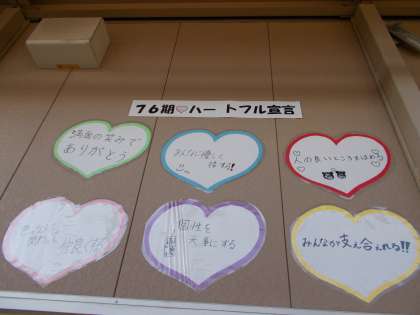 76期♡ハートフル宣言
満面の笑みで
ありがとう
みんなに優しく
接する!!
人の良いところをほめる
仲良くする
個性を
大事にする
みんなが支え合える!!